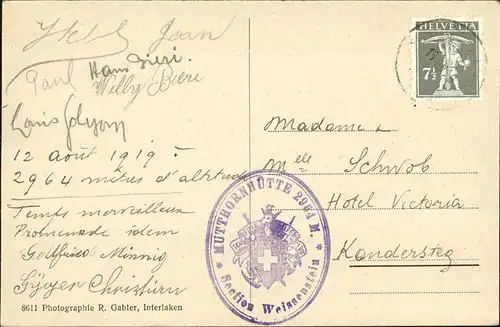 Jean
Paul Hans Bieri.
Willy Bieri
12 août 1919 :
2964 mètres d'altitude
Temps merveilleux
Promenade idem
Gottfried Minnig
HELVETIA
7½
Madame
Melle Schwob
Hotel Victoria
Kandersteg
* MUTTHORNHÜTTE 2964 M. *
Section Weissenstein
8611 Photographie R. Gabler, Interlaken